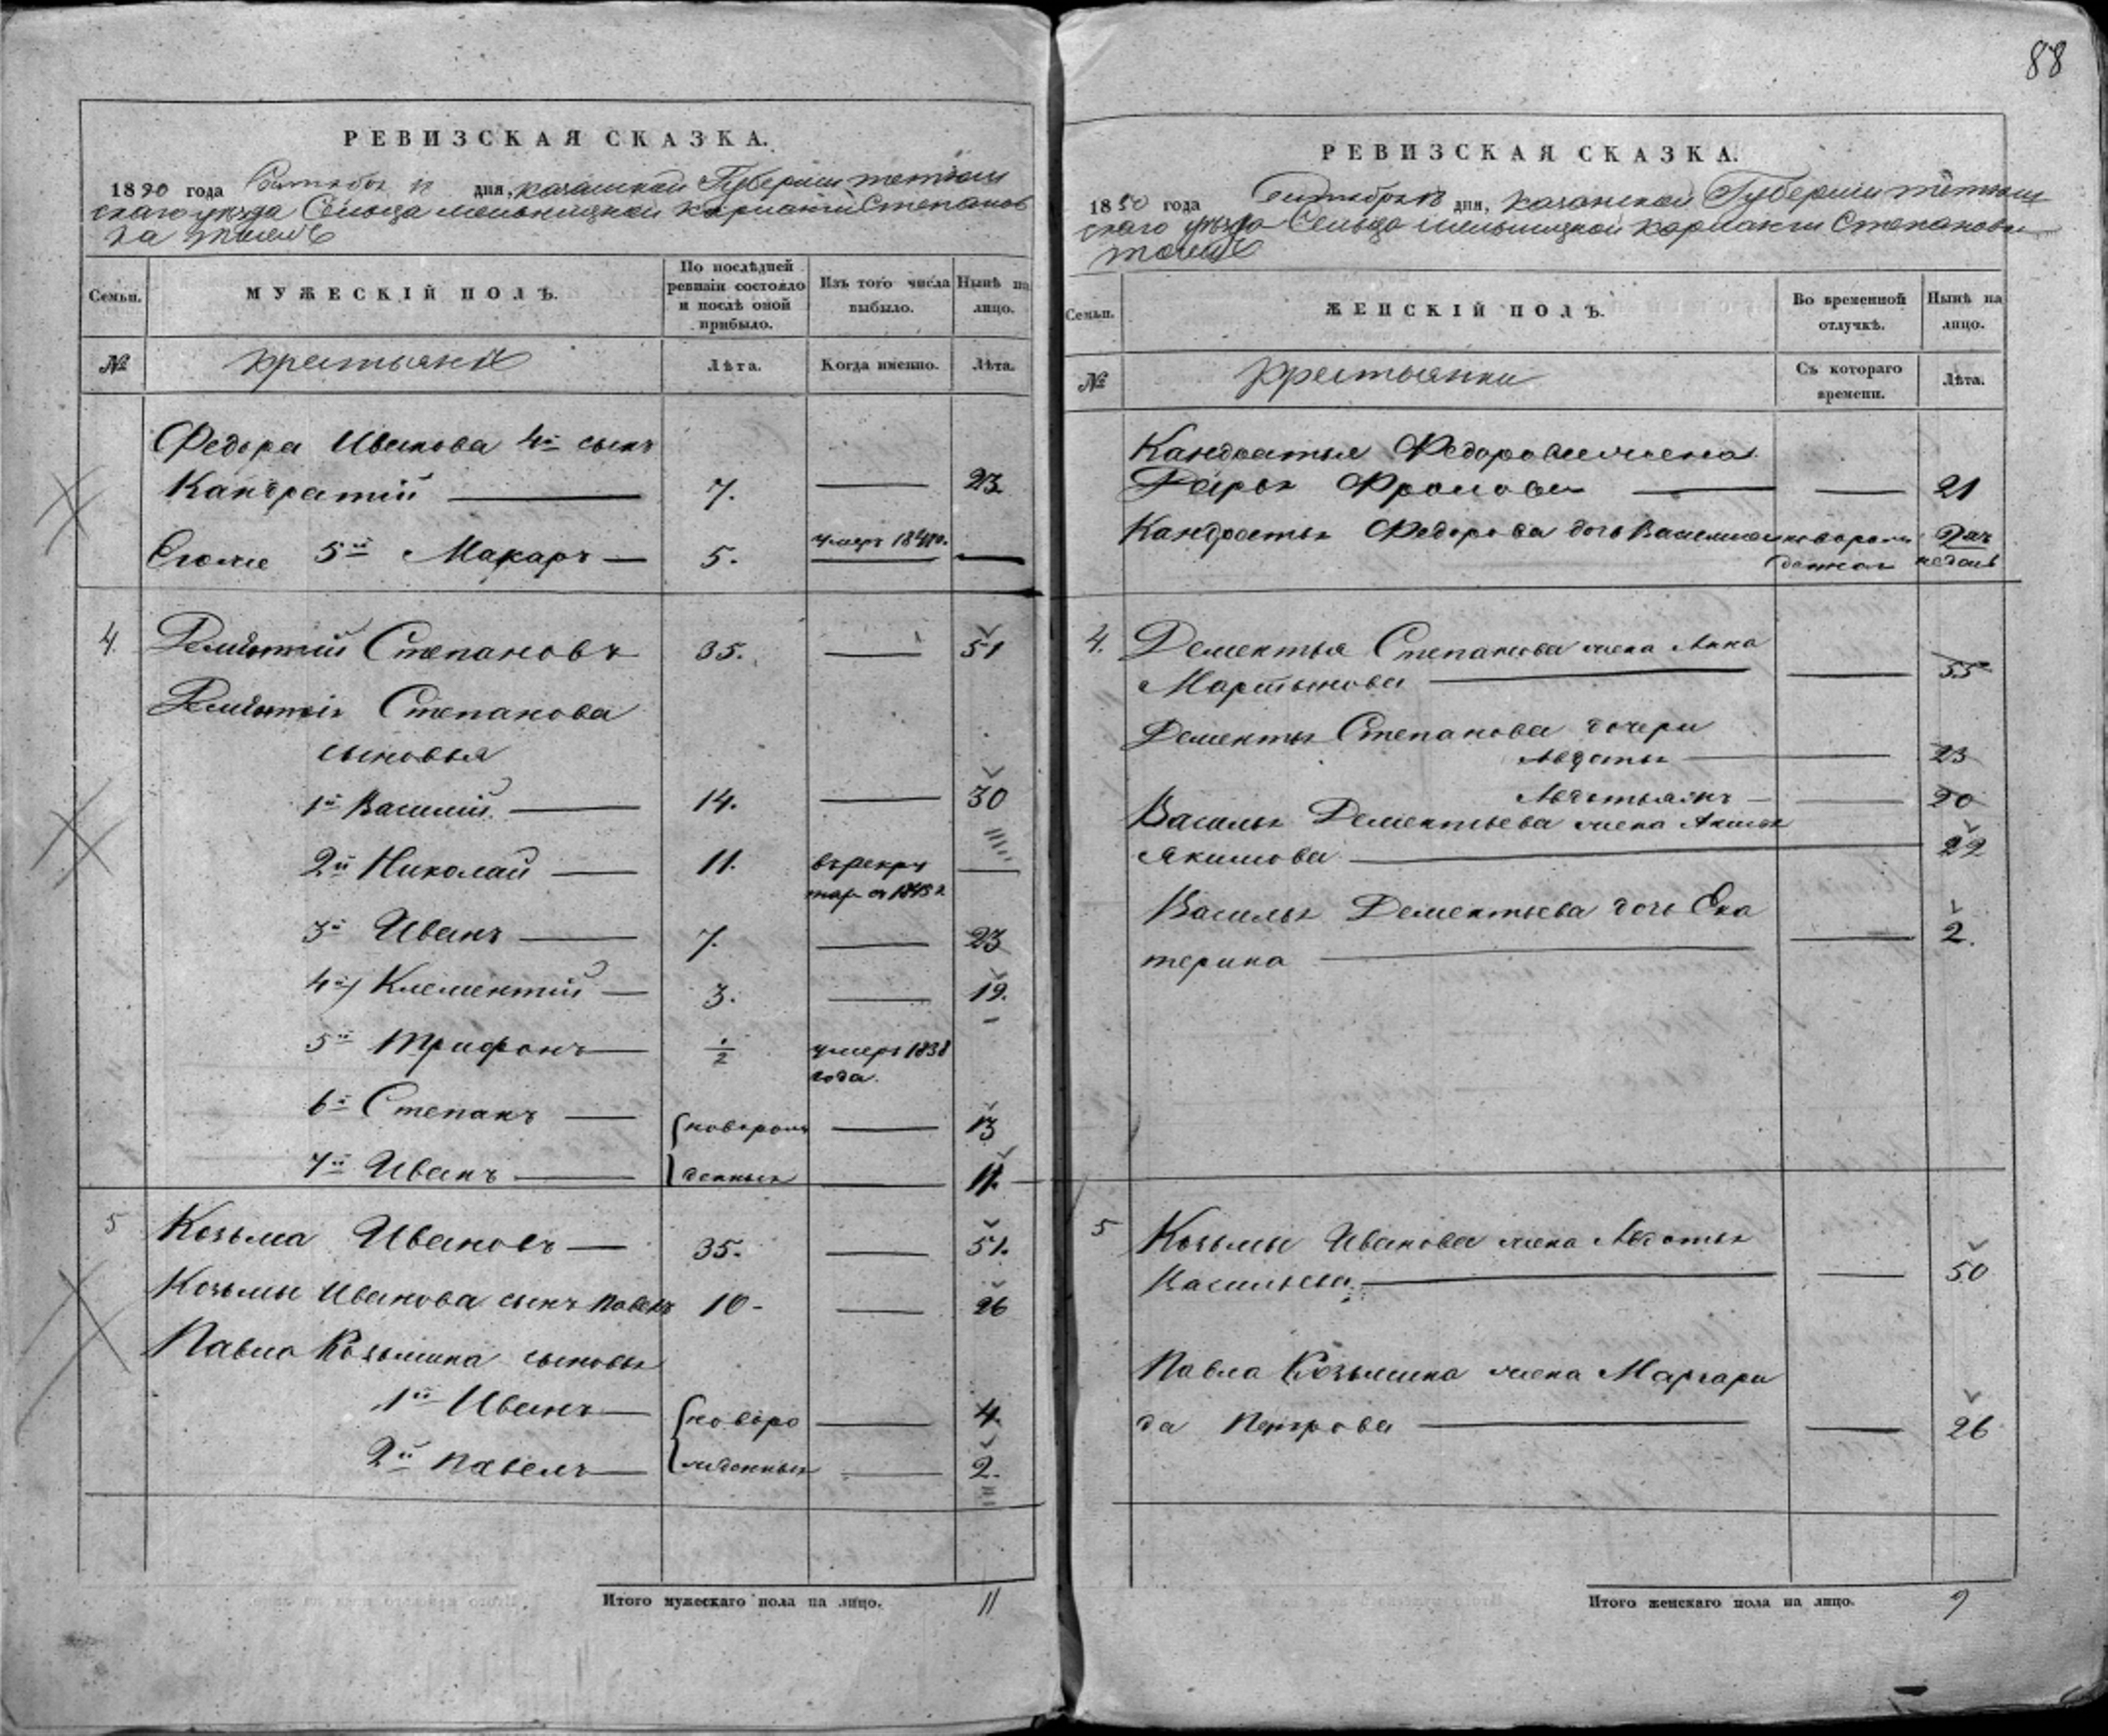 88
РЕВИЗСКАЯ СКАЗКА.
1850 года Октября дня, казанской Губернии тетюш
скаго уѣзда Сельца Степанов
ка тожъ
Семьи.
МУЖЕСКІЙ ПОЛЪ.
По послѣдней ревизіи состояло и послѣ оной прибыло.
Изъ того числа выбыло.
Нынѣ на лицо.
№
крестьяне
Лѣта.
Когда именно.
Лѣта.
Федора Иванова 4й сынъ
Кандратій 7. 23
Егоже 5й Макаръ 5. умеръ 1840.
4. Дементій Степановъ 35. 51
Дементія Степанова
сыновья
1й Василий 14. 30
2й Николай 11. въ рекру
тар в 1843 г
3й Иванъ 7. 23
4й Клементий 3. 19.
5й Трифонъ 1/2 умеръ 1838
года.
6й Степанъ новорож 13
7й Иванъ денныя 11.
5 Козьма Ивановъ 35. 51.
Козьмы Иванова сынъ Павелъ 10 26
Павла Козьмина сыновья
1й Иванъ новоро 4.
2й Павелъ жденныя 2.
Итого мужескаго пола на лицо. 11
РЕВИЗСКАЯ СКАЗКА.
1850 года Октября дня, казанской Губернии тетюш
скаго уѣзда Сельца Степановка
тожъ
Семьи.
ЖЕНСКІЙ ПОЛЪ.
Во временной отлучкѣ.
Нынѣ на лицо.
№
крестьянки
Съ котораго времени.
Лѣта.
Кандратья Федорова жена
Дарья Фролова 21
Кандратья Федорова дочь новорож
денная недель
4. Дементья Степанова жена Анна
Мартынова 55
Дементья Степанова дочери
Авдотья 23
20
Василья Дементьева жена
Якимова 22
Василья Дементьева дочь Ека
терина 2.
5 Козьмы Иванова жена Авдотья
Васильева 50
Павла Козьмина жена Маргари
да Петрова 26
Итого женскаго пола на лицо. 9